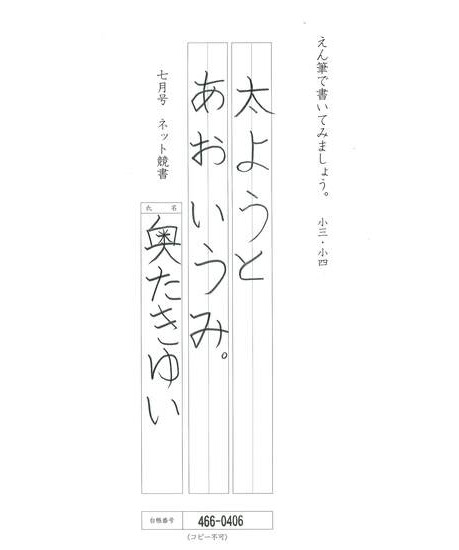 えん筆で書いてみましょう。 小三・小四
太ようと
あおいうみ。
七月号 ネット競書
氏名
奥たきゆい
台帳番号 466-0406
(コピー不可)